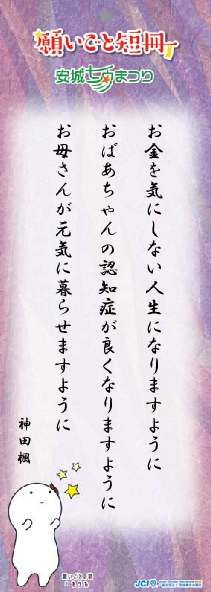 願いごと短冊
安城七夕まつり
お金を気にしない人生になりますように
おばあちゃんの認知症が良くなりますように
お母さんが元気に暮らせますように
神田楓
願いごと短冊
JCI